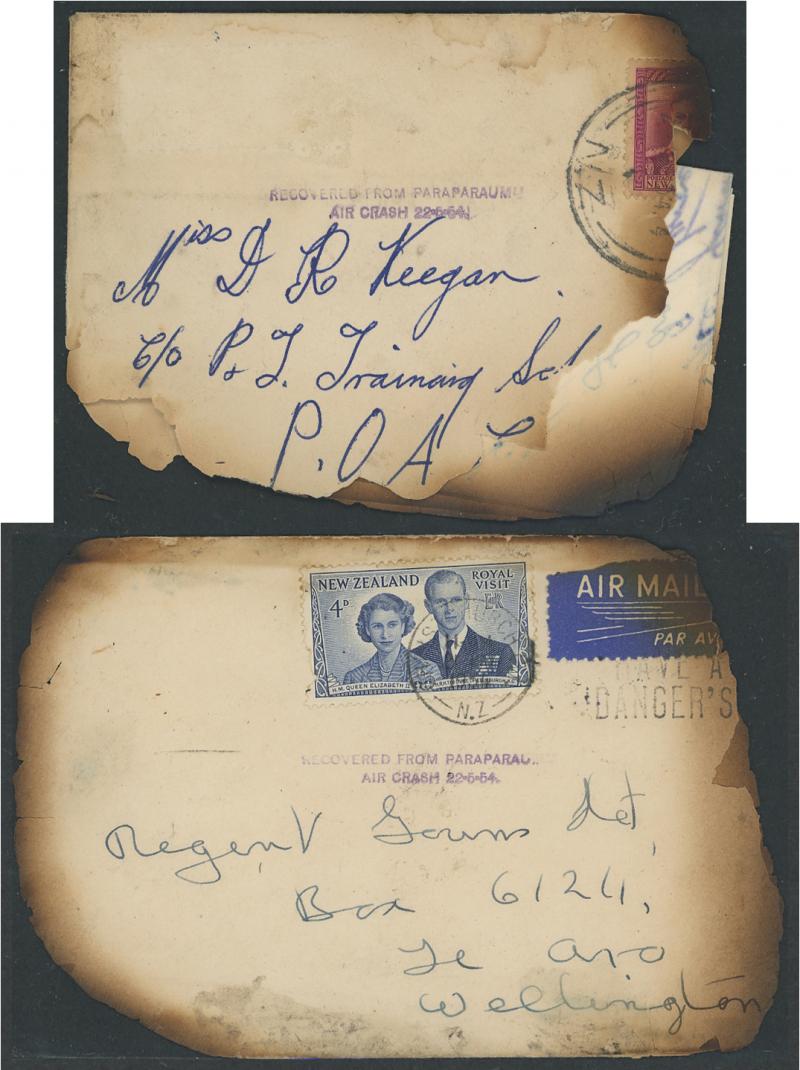 POSTAGE
NEW
NZ
RECOVERED FROM PARAPARAUMU
AIR CRASH 22·5·54.
Miss D R Keegan.
c/o P & T. Training
P.O A
NEW ZEALAND ROYAL VISIT
4D ER
H.M. QUEEN ELIZABETH II
AIR MAIL
PAR AV
HAVE A
DANGER'S
N.Z
RECOVERED FROM PARAPARAU
AIR CRASH 22·5·54.
Regent Gowns Ltd,
Box 6124,
Te Aro
Wellington